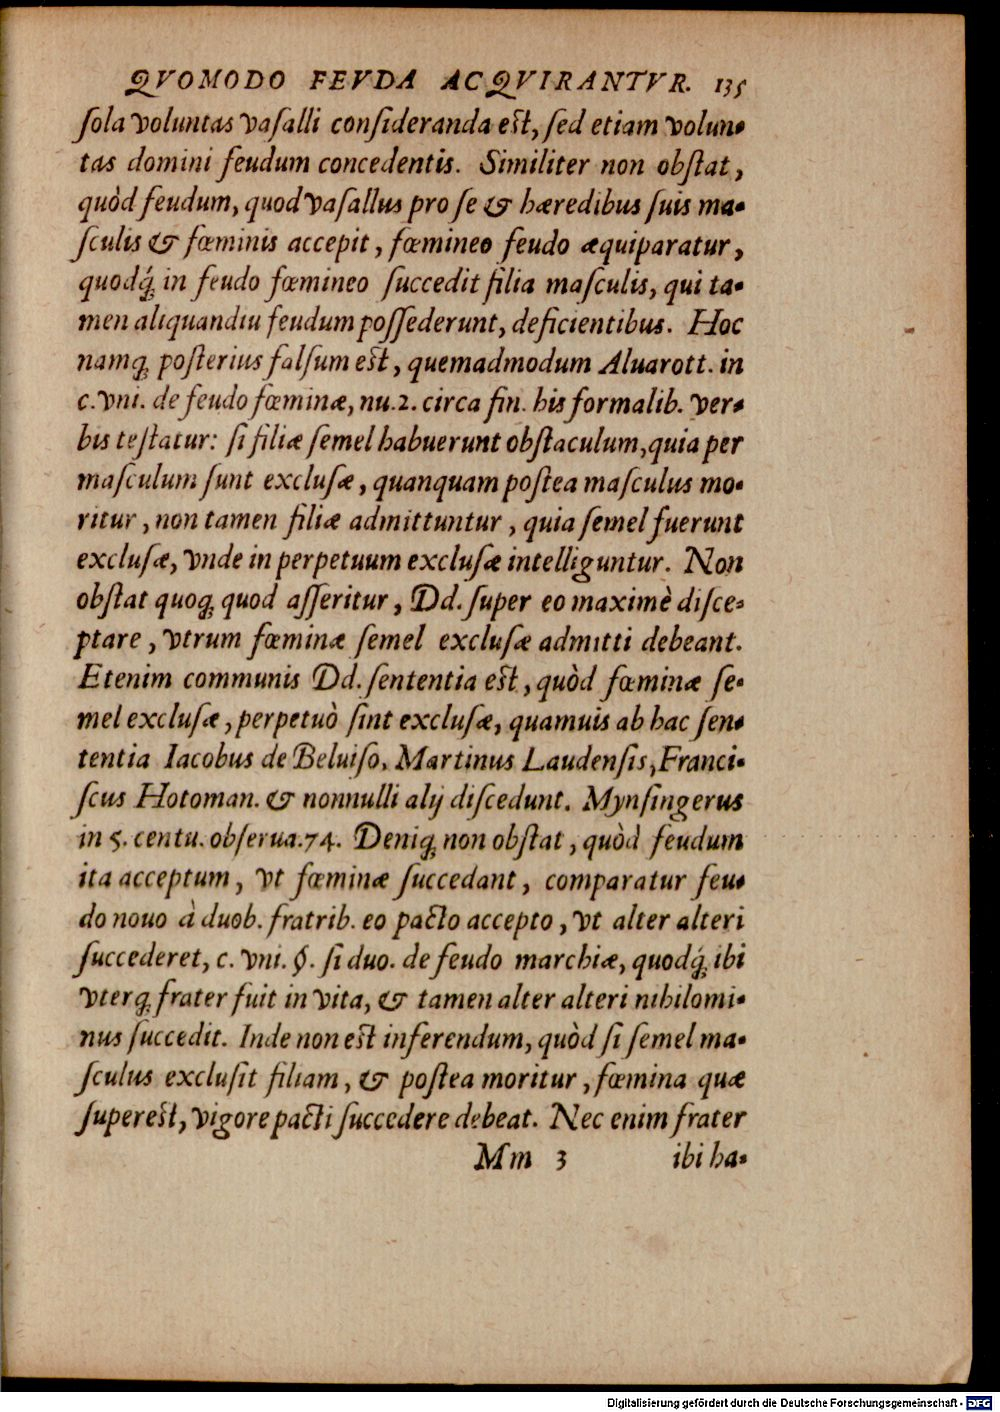 QVOMODO FEVDA ACQVIRANTVR. 135
ſola voluntas vaſalli conſideranda est, ſed etiam volun-
tas domini feudum concedentis. Similiter non obſtat,
quòd feudum, quod vaſallus pro ſe & hæredibus ſuis ma-
ſculis & fœminis accepit, fœmineo feudo æquiparatur,
quodq́; in feudo fœmineo ſuccedit filia maſculis, qui ta-
men aliquandiu feudum poſſederunt, deficientibus. Hoc
namq; poſterius falſum est, quemadmodum Aluarott. in
c. vni. de feudo fœminæ, nu. 2. circa fin. his formalib. ver-
bis teſtatur: ſi filiæ ſemel habuerunt obſtaculum, quia per
maſculum ſunt excluſæ, quanquam poſtea maſculus mo-
ritur, non tamen filiæ admittuntur, quia ſemel fuerunt
excluſæ, vnde in perpetuum excluſæ intelliguntur. Non
obſtat quoq; quod aſſeritur, Dd. ſuper eo maximè diſce-
ptare, vtrum fœminæ ſemel excluſæ admitti debeant.
Etenim communis Dd. ſententia est, quòd fœminæ ſe-
mel excluſæ, perpetuò ſint excluſæ, quamuis ab hac ſen-
tentia Iacobus de Beluiſo, Martinus Laudenſis, Franci-
ſcus Hotoman. & nonnulli alij diſcedunt. Mynſingerus
in 5. centu. obſerua. 74. Deniq; non obſtat, quòd feudum
ita acceptum, vt fœminæ ſuccedant, comparatur feu-
do nouo à duob. fratrib. eo pacto accepto, vt alter alteri
ſuccederet, c. vni. §. ſi duo. de feudo marchiæ, quodq́; ibi
vterq; frater fuit in vita, & tamen alter alteri nihilomi-
nus ſuccedit. Inde non est inferendum, quòd ſi ſemel ma-
ſculus excluſit filiam, & poſtea moritur, fœmina quæ
ſuperest, vigore pacti ſuccedere debeat. Nec enim frater
Mm 3 ibi ha-
Digitalisierung gefördert durch die Deutsche Forschungsgemeinschaft - DFG